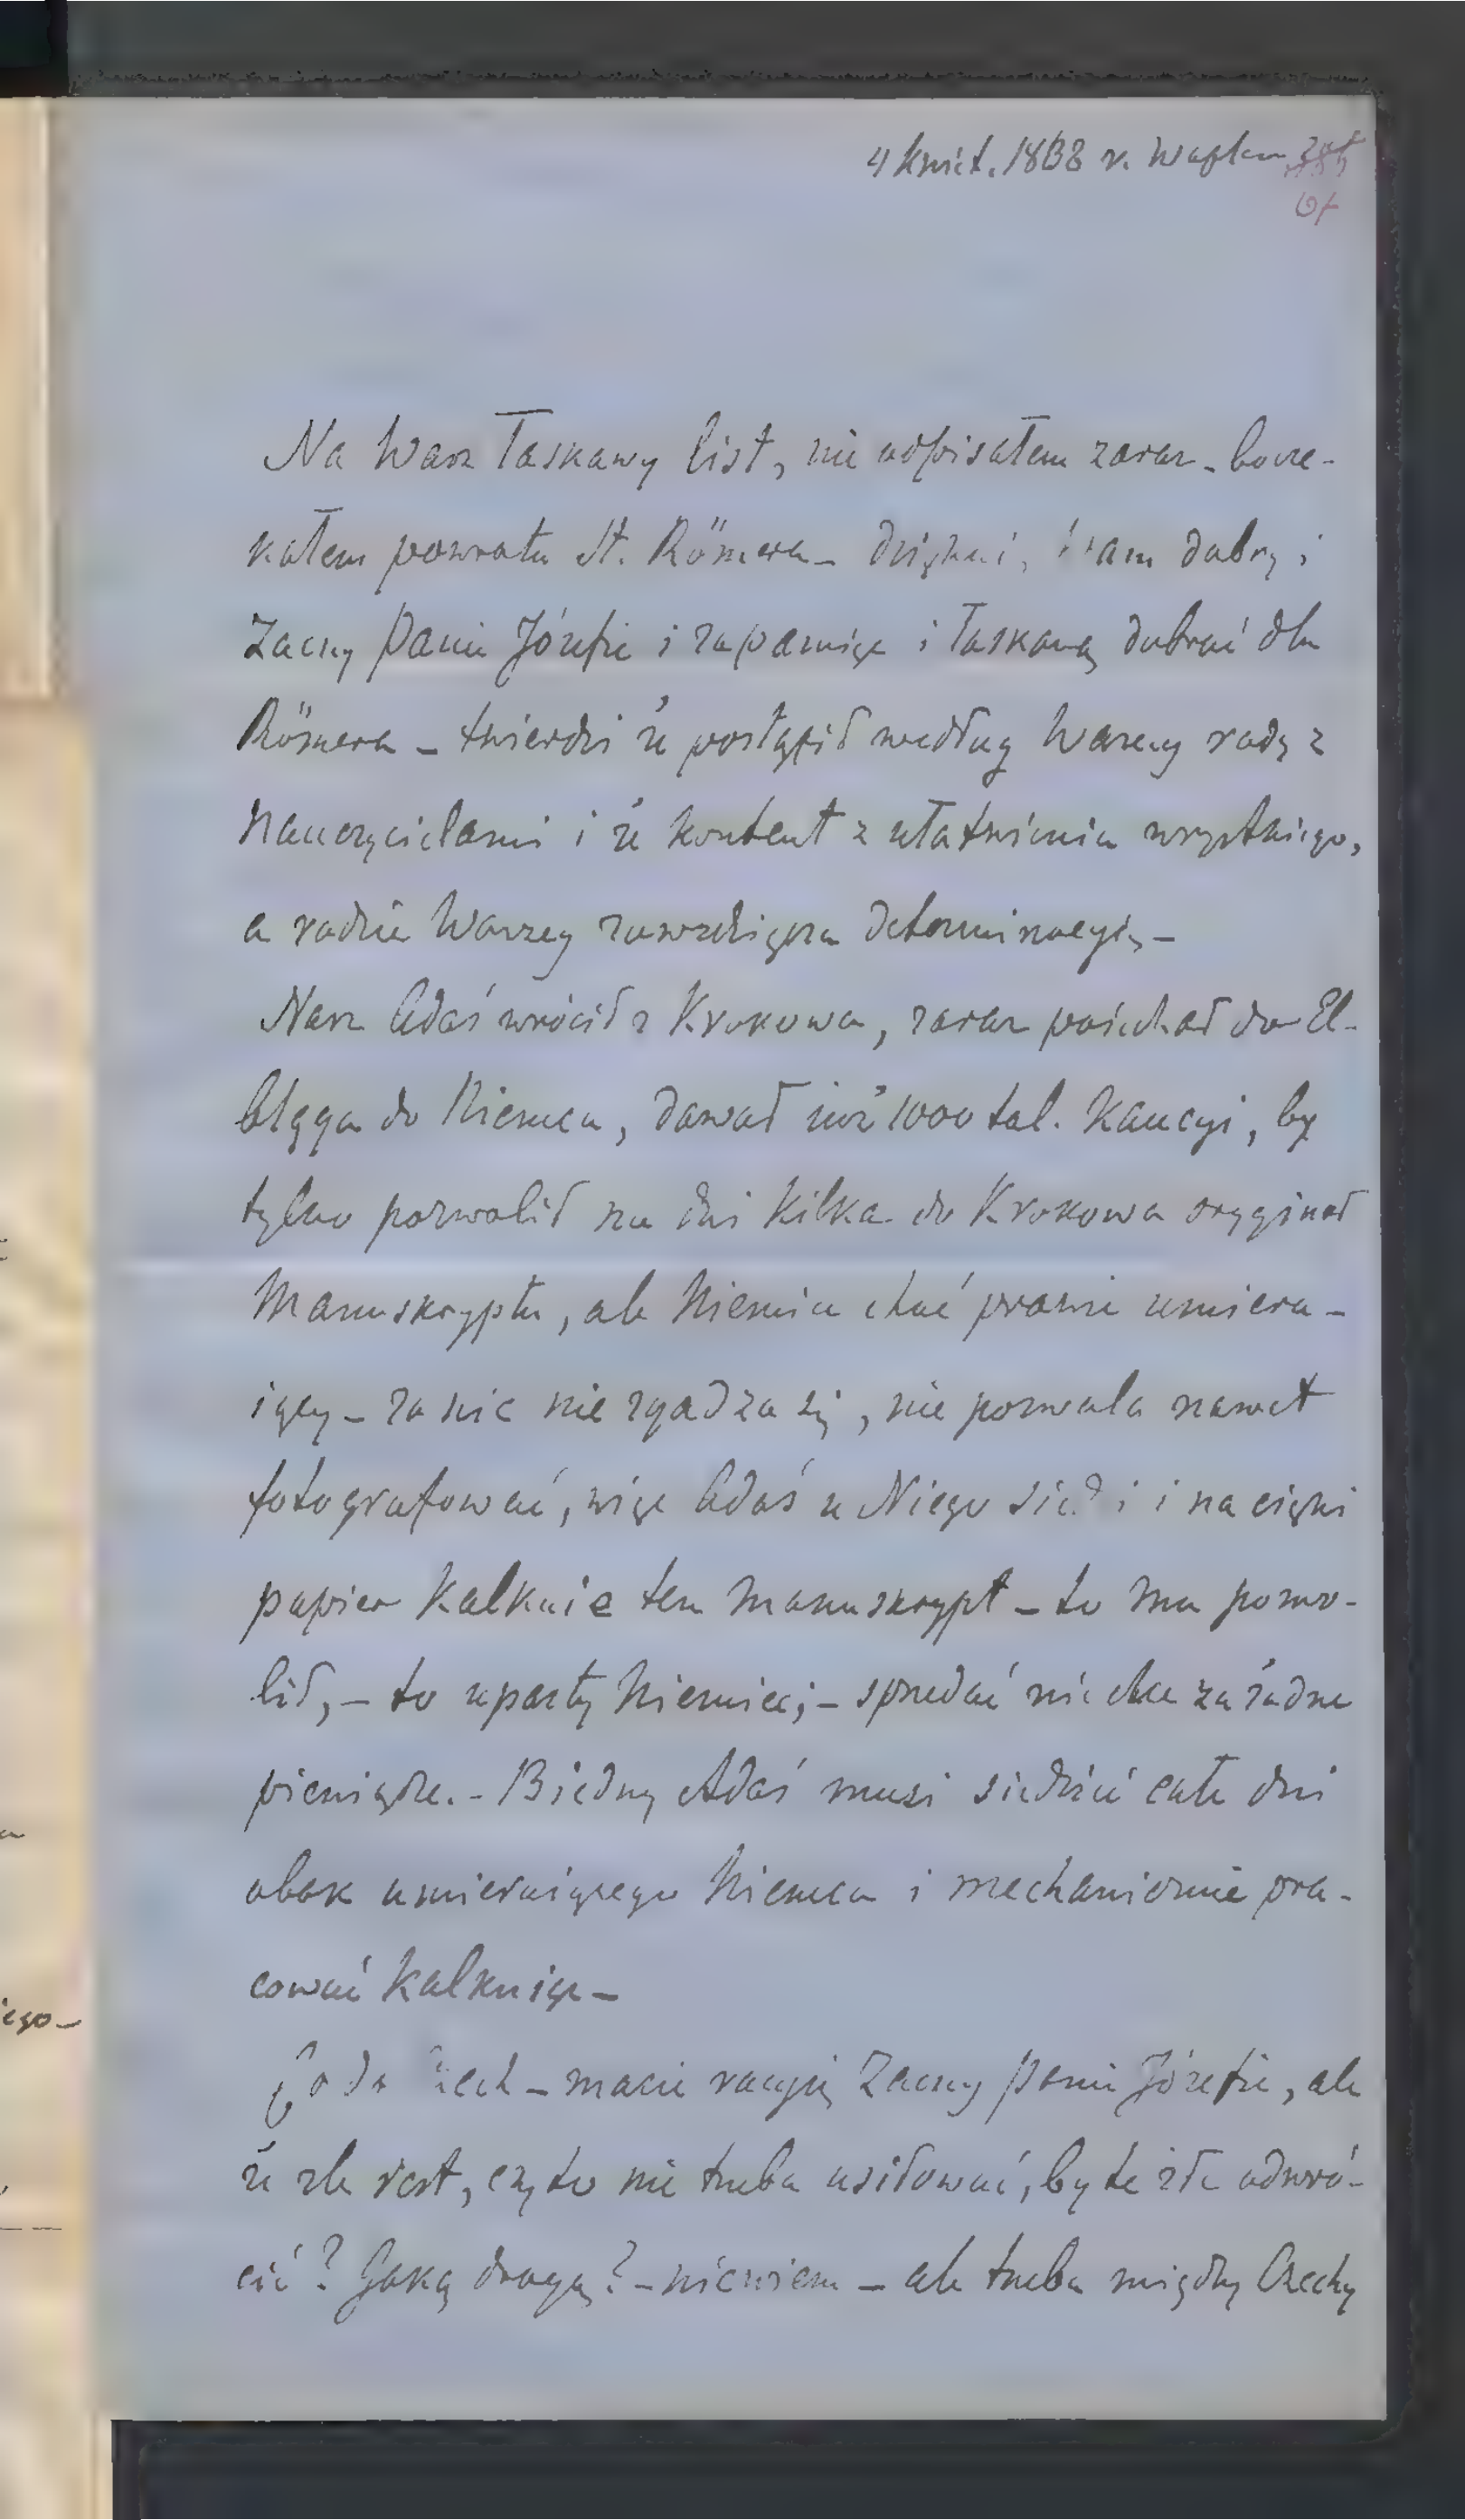 4 kwiet. 1868 r. Waplewo
Na Wasz łaskawy list, nie odpisałem zaraz – bo cze-
kałem powrotu St. Römera – dzięki, Wam dobry i
Zacny Panie Józefie i za pamięć i łaskawą dobroć dla
Römera – twierdzi że postąpił według Waszey rady z
Nauczycielami i że kontent z ułatwienia wszystkiego,
a radzie Waszey zawdzięcza determinacyią –
Nasz Adaś wrócił z Krakowa, zaraz poiechał do El-
bląga do Niemca, dawał iuż 1000 tal. kaucyi, by
tylko pozwolił na dni kilka do Krakowa oryginał
Manuskryptu, ale Niemiec choć prawie umiera-
iący – za nic nie zgadza się, nie pozwala nawet
fotografować, więc Adaś u Niego siedzi i na cięki
papier kalkuie ten Manuskrypt – to mu pozwo-
lił, – to uparty Niemiec; – sprzedać nie chce za żadne
pieniądze. – Biedny Adaś musi siedzieć całe dni
obok umieraiącego Niemca i mechanicznie pra-
cować kalkuiąc –
Co do Czech – macie racyią Zacny Panie Józefie, ale
że źle iest, czy to nie trzeba usiłować, by te złe odwró-
cić? Jaką drogą? – nie wiem – ale trzeba między Czechy